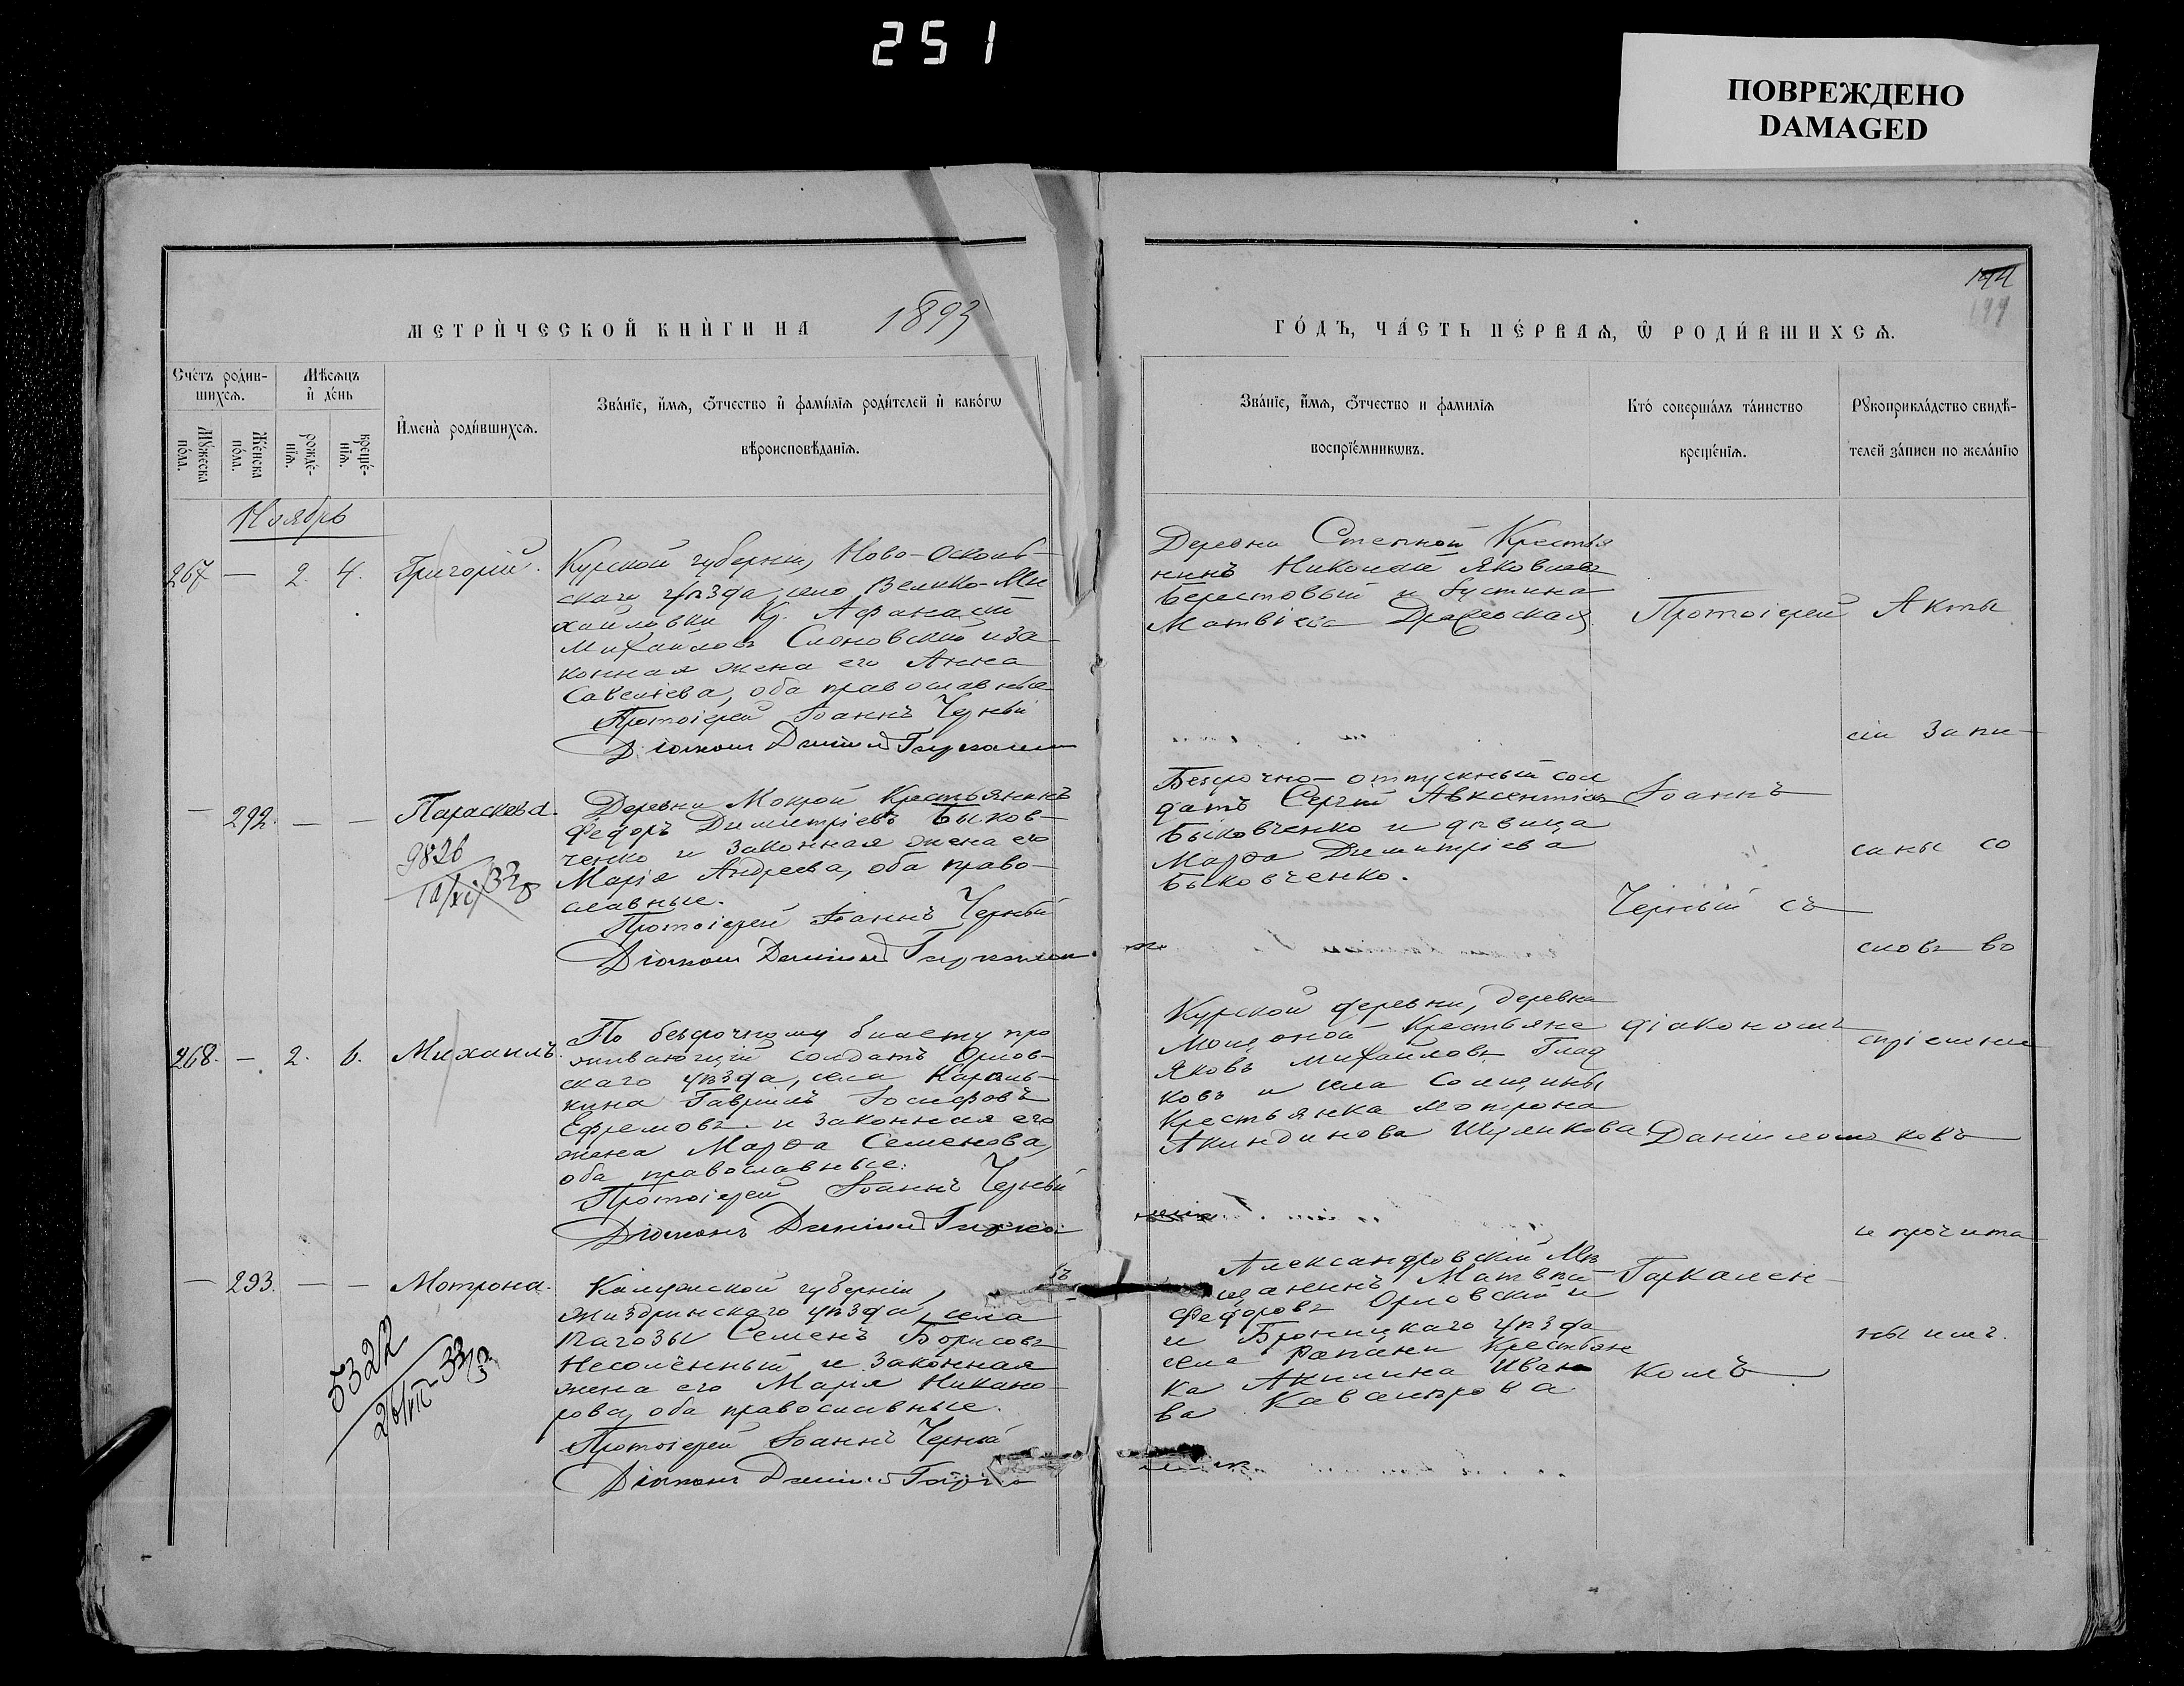 251
ПОВРЕЖДЕНО
DAMAGED
МЕТРИЧЕСКОЙ КНИГИ НА 1893
ГОДЪ, ЧАСТЬ ПЕРВАЯ, Ѿ РОДИВШИХСЯ.
144
Счетъ родив-
шихся.
Мѣсяцъ
и день
Мужеска
пола.
Женска
пола.
рожде-
нїя.
креще-
нїя.
Имена родившихся.
Званїе, имя, ѿтчество и фамилїя родителей и какогѡ
вѣроисповѣданїя.
Званїе, имя, ѿтчество и фамилїя
воспрїемникѡвъ.
Кто совершалъ таинство
крещенїя.
Рукоприкладство свидѣ-
телей записи по желанїю
Ноябрь
267 — 2. 4. Григорій.
Курской губерніи, Ново-Осколь-
скаго уѣзда, село Велико-Ми
хайловки Кр. Афанасій
Михайловъ Слоновскій и за-
конная жена его Анна
Савеліева, оба православные
Протоіерей Іоаннъ Черный
Діаконъ Даніилъ
Деревни Степной Крестья
нинъ Николай Яковлевъ
Берестовый и Іустина
Матвіева
Протоіерей
Акты
сіи запи-
— 292. — — Параскева.
9826
Деревни Мокрой Крестьянинъ
Федоръ Димитріевъ Быков-
ченко и законная жена его
Марія Андреева, оба право-
славные.
Протоіерей Іоаннъ Черный
Діаконъ Даніилъ
Безсрочно-отпускный сол
датъ Сергій Авксентіевъ
Быковченко и дѣвица
Марѳа Димитріева
Быковченко.
Іоаннъ
Черный съ
саны со
словъ во
268. — 2. 6. Михаилъ.
По безсрочному билету про
живающій солдатъ Орлов-
скаго уѣзда, села Караль-
кина Гавріилъ Іосифовъ
Ефремовъ и законная его
жена Марѳа Семенова,
оба православные.
Протоіерей Іоаннъ Черный
Діаконъ Даніилъ
Курской деревни, деревни
Крестьяне
Яковъ Михайловъ Глад
ковъ и села Солнцины
Крестьянка Мотрона
Акиндинова Шуликова
діакономъ
Даніиломъ
спріемни
ковъ
и прочита
— 293. — — Мотрона.
5322
Калужской губерніи,
Жиздринскаго уѣзда, села
Пагозы Семенъ Борисовъ
Несолённый и законная
жена его Марія Никано-
рова, оба православные.
Протоіерей Іоаннъ Черный
Діаконъ Даніилъ
Александровскій Мѣ
щанинъ Матвѣй
Федоровъ Орловскій и
и Бронницкаго уѣзда
села Рапани Крестьян
ка Акилина Ивано
ва
Гаркален-
комъ
ны имъ.